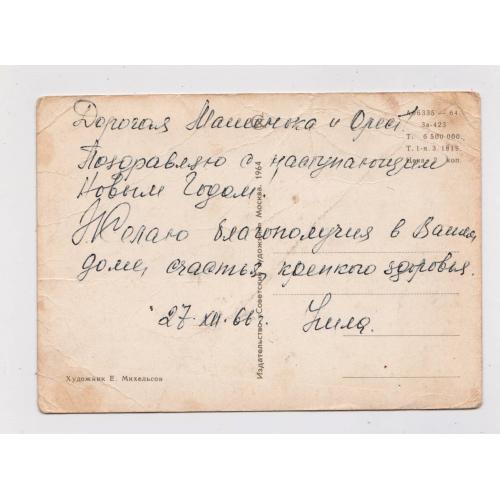 Дорогая Машенька и Орест!
Поздравляю с наступающим
Новым Годом.
Желаю благополучия в Вашем
доме, счастья, крепкого здоровья.
27.XII.66. Нила.
А06335 — 64.
За-423
Т. 6 500 000.
Т. 1-я. З. 1819.
коп.
Издательство «Советский художник» Москва. 1964
Художник Е. Михельсов